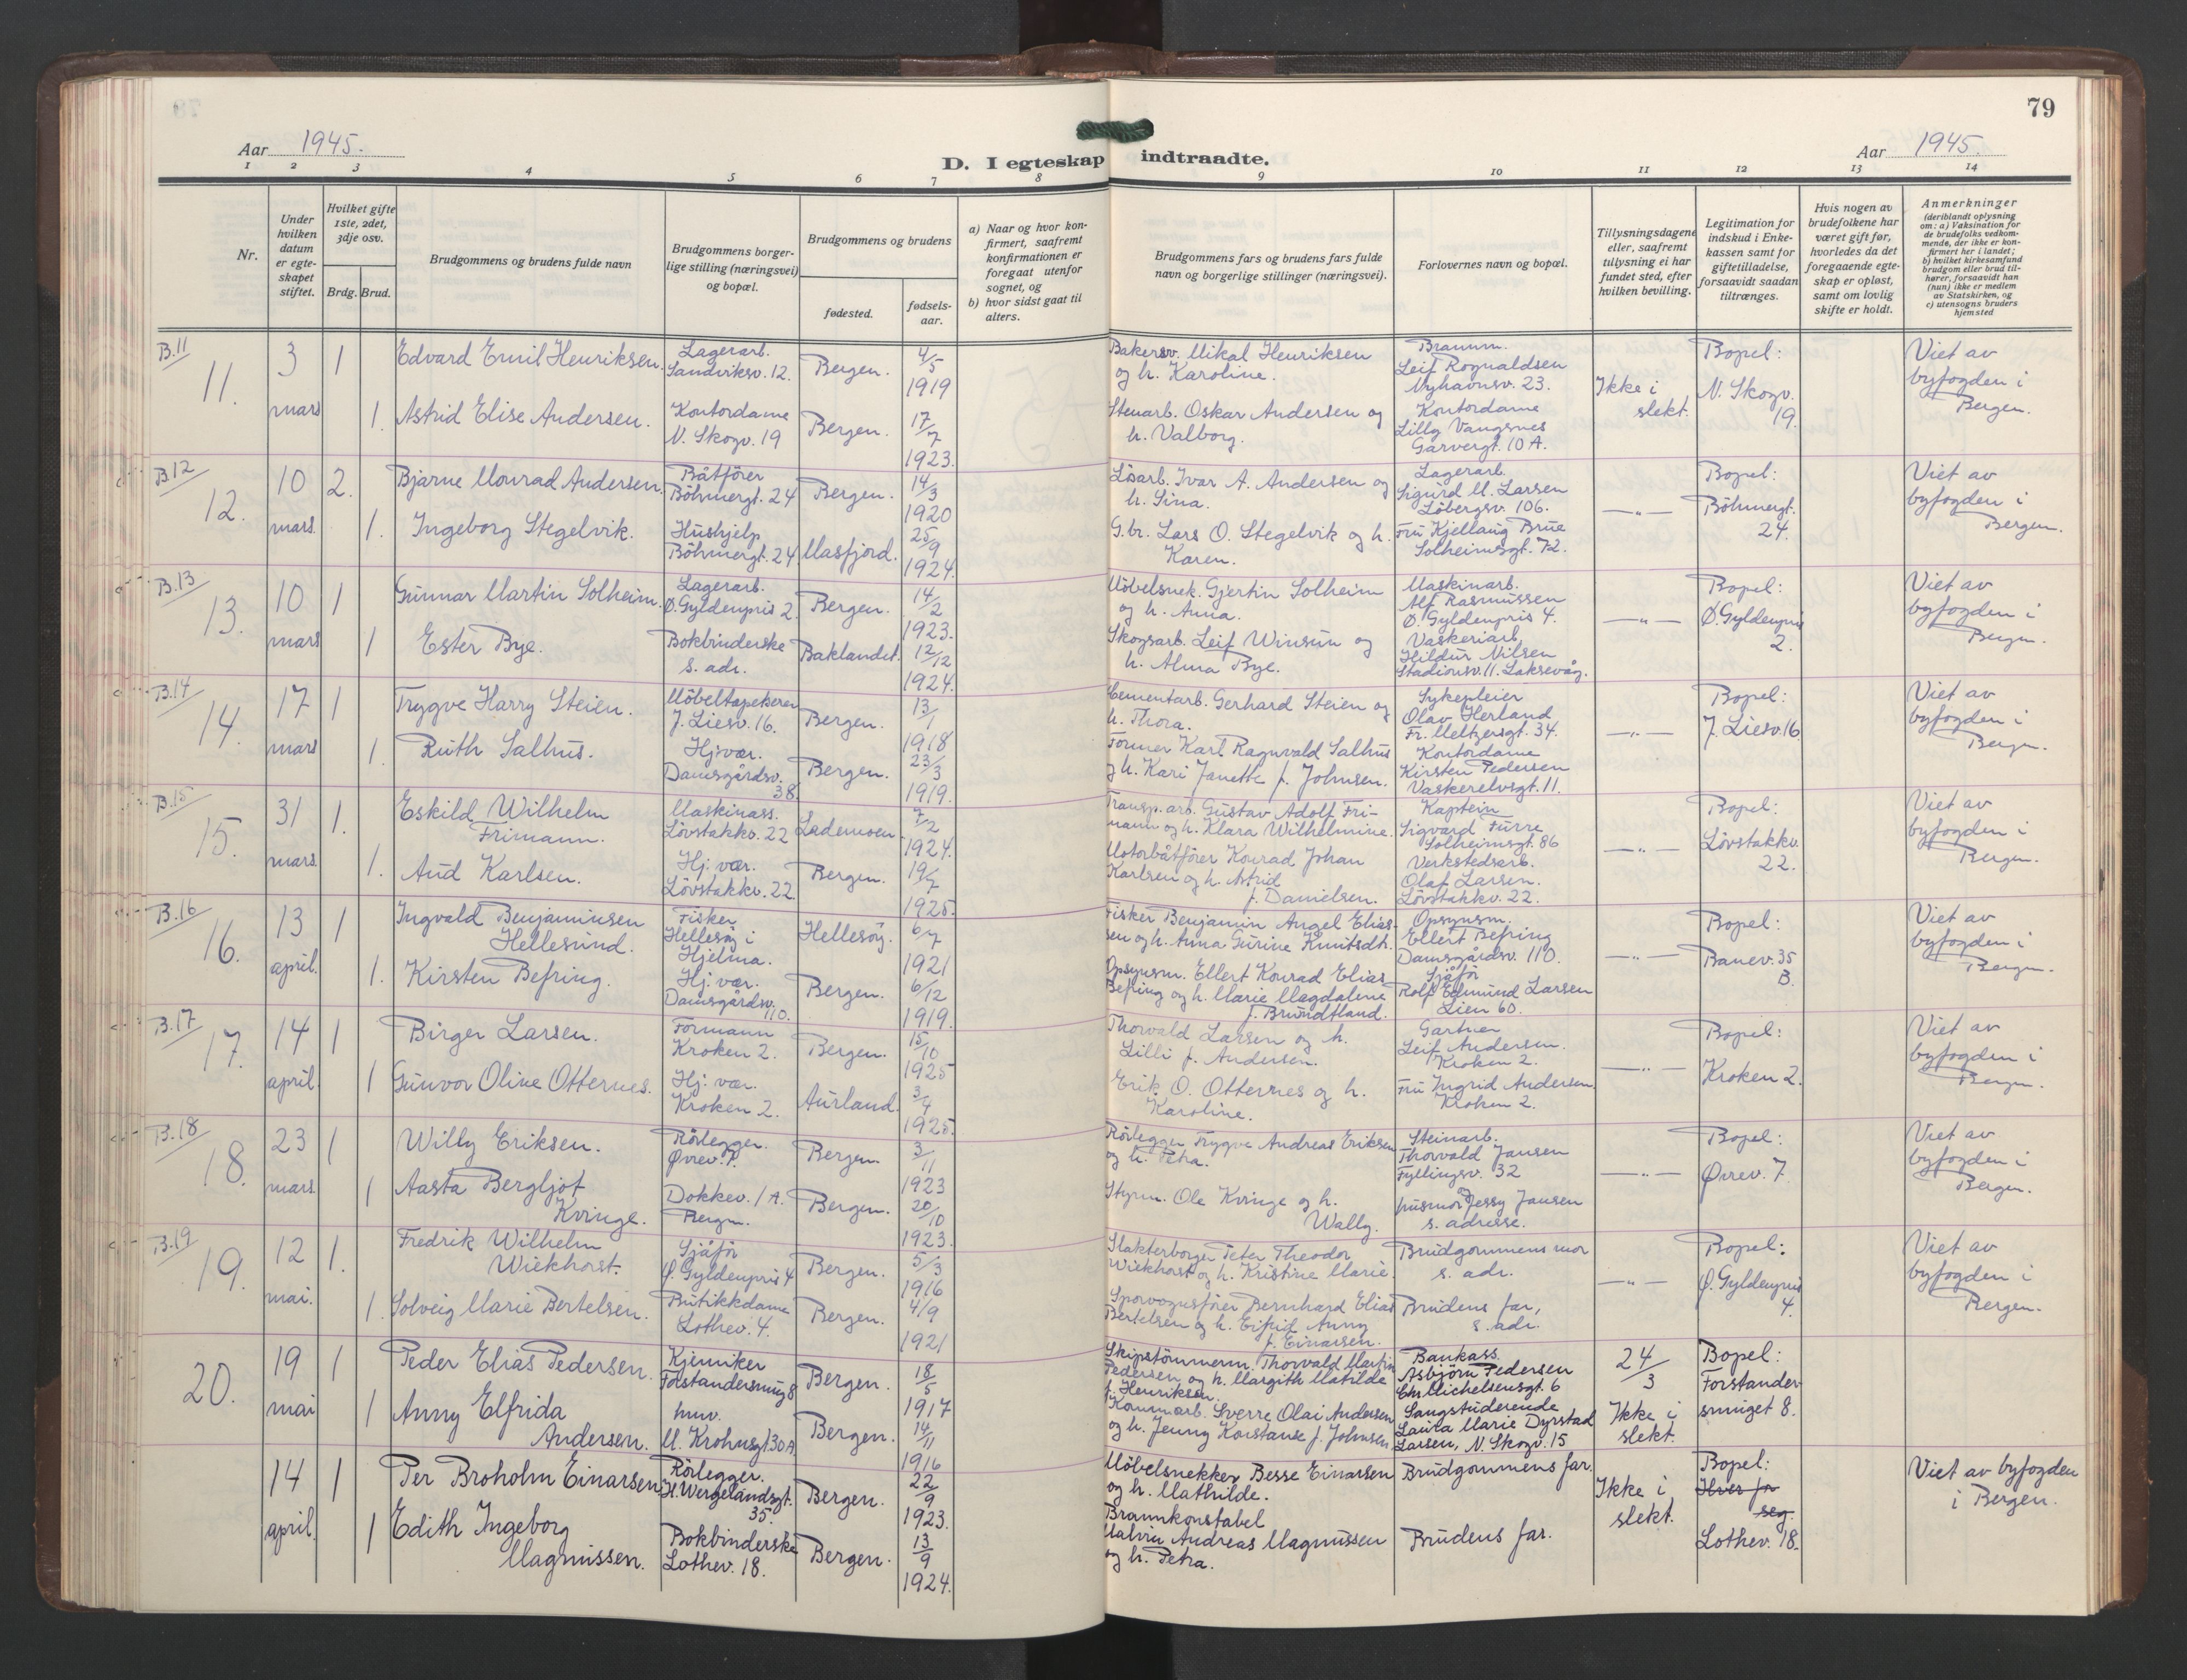 79
Aar 1945.
D. I egteskap indtraadte.
Aar 1945.
1 2 3 4 5 6 7 8 9 10 11 12 13 14
Nr.
Under hvilken datum er egteskapet stiftet.
Hvilket gifte 1ste, 2det, 3dje osv.
Brdg. Brud.
Brudgommens og brudens fulde navn
Brudgommens borger-
lige stilling (næringsvei)
og bopæl.
Brudgommens og brudens
fødested.
fødsels-
aar.
a) Naar og hvor kon-
firmert, saafremt
konfirmationen er
foregaat utenfor
sognet, og
b) hvor sidst gaat til
alters.
Brudgommens fars og brudens fars fulde
navn og borgerlige stillinger (næringsvei).
Forlovernes navn og bopæl.
Tillysningsdagene
eller, saafremt
tillysning ei har
fundet sted, efter
hvilken bevilling.
Legitimation for
indskud i Enke-
kassen samt for
giftetilladelse,
forsaavidt saadan
tiltrænges.
Hvis nogen av
brudefolkene har
været gift før,
hvorledes da det
foregaaende egte-
skap er opløst,
samt om lovlig
skifte er holdt.
Anmerkninger
(deriblandt oplysning
om: a) Vaksination for
de brudefolks vedkom-
mende, der ikke er kon-
firmert her i landet;
b) hvilket kirkesamfund
brudgom eller brud til-
hører, forsaavidt han
(hun) ikke er medlem
av Statskirken, og
c) utensogns bruders
hjemsted
B.11
11.
3 mars
1
Edvard Emil Henriksen.
Lagerarb.
Sandviksv. 12.
Bergen.
4/5 1919
Bakersv. Mikal Henriksen
og h. Karoline.
Brannm.
Leif Rognaldsen
Nyhavnsv. 23.
Ikke i
slekt.
Bopel:
N. Skogv.
19.
Viet av
byfogden i
Bergen.
1.
Astrid Elise Andersen.
Kontordame
N. Skogv. 19
Bergen.
17/7 1923.
Stenarb. Oskar Andersen og
h. Valborg.
Kontordame
Lilly Vangsnes
Garvergt. 10 A.
B.12
12.
10 mars
2.
Bjarne Monrad Andersen.
Båtfører
Böhmergt. 24
Bergen.
14/3 1920
Løsarb. Ivar A. Andersen og
h. Sina.
Lagerarb.
Sigurd M. Larsen
Løbergsv. 106.
—„—
Bopel:
Böhmergt.
24.
Viet av
byfogden i
Bergen.
1.
Ingeborg Stegelvik.
Hushjelp
Böhmergt. 24
Masfjord.
25/9 1924.
G.br. Lars O. Stegelvik og h.
Karen.
Fru Kjellaug Brue
Solheimsgt. 72.
B.13
13.
10 mars
1
Gunnar Martin Solheim.
Lagerarb.
Ø. Gyldenpris 2.
Bergen.
14/2 1923.
Möbelsnek. Gjertin Solheim
og h. Anna.
Maskinarb.
Alf Rasmussen
Ø. Gyldenpris 4.
—„—
Bopel:
Ø. Gyldenpris
2.
Viet av
byfogden i
Bergen.
1
Ester Bye.
Bokbinderske
s. adr.
Baklandet.
12/12 1924.
Skogsarb. Leif Winsun og
h. Alma Bye.
Vaskeriarb.
Hildur Nilsen
Stadionsv. 11. Laksevåg.
B.14
14.
17 mars
1
Trygve Harry Steien.
Möbeltapetserer
J. Liesv. 16.
Bergen.
13/1 1918
Cementarb. Gerhard Steien og
h. Thora.
Sykepleier
Olav Herland
Fr. Meltzersgt. 34.
—„—
Bopel:
J. Liesv. 16.
Viet av
byfogden i
Bergen.
1.
Ruth Salhus.
Hj. vær.
Damsgårdsv.
38.
Bergen.
23/3 1919.
Former Karl Ragnvald Salhus
og h. Kari Janette f. Johnsen.
Kontordame
Kirsten Pedersen
Vaskerelvsgt. 11.
B.15
15.
31 mars
1.
Eskild Wilhelm
Frimann.
Maskinass.
Lövstakkv. 22
Lademoen
7/2 1924.
Transp.arb. Gustav Adolf Fri-
mann og h. Klara Wilhelmine.
Kaptein
Sigvard Furre
Solheimsgt. 86
—„—
Bopel:
Lövstakkv.
22.
Viet av
byfogden i
Bergen.
1.
Aud Karlsen.
Hj. vær.
Lövstakkv. 22.
Bergen.
19/7 1925.
Motorbåtfører Konrad Johan
Karlsen og h. Astrid
f. Danielsen.
Verkstedsarb.
Olaf Larsen.
Lövstakkv. 22.
B.16
16.
13 april.
1
Ingvald Benjaminsen
Hellesund.
Fisker
Hellesøy i
Hjelma.
Hellesøy.
6/7 1921
Fisker Benjamin Angel Elias-
sen og h. Anna Gurine Knutsdt.
Opsynsm.
Ellert Befring
Damsgårdsv. 110.
—„—
Bopel:
Banev. 35
B.
Viet av
byfogden i
Bergen.
1.
Kirsten Befring.
Hj. vær.
Damsgårdsv.
110.
Bergen.
6/12 1919.
Opsynsm. Ellert Konrad Elias
Befring og h. Marie Magdalene
f. Brundtland.
Sjåfør
Rolf Edmund Larsen
Lien 60.
B.17
17.
14 april.
1
Birger Larsen.
Formann
Kroken 2.
Bergen.
15/10 1925
Thorvald Larsen og h.
Lilli f. Andersen.
Gartner
Leif Andersen.
Kroken 2.
—„—
Bopel:
Kroken 2.
Viet av
byfogden i
Bergen.
1
Gunvor Oline Otternes.
Hj. vær.
Kroken 2.
Aurland.
3/4 1925.
Erik O. Otternes og h.
Karoline.
Fru Ingrid Andersen.
Kroken 2.
B.18
18.
23 mars
1
Willy Eriksen.
Rörlegger.
Øvrev. 7.
Bergen
3/11 1923
Rörlegger Trygve Andreas Eriksen
og h. Petra.
Steinarb.
Thorvald Jansen
Fyllingsv. 32
—„—
Bopel:
Øvrev. 7.
Viet av
byfogden i
Bergen.
1
Aasta Bergljot
Kvinge.
Dokkev. 1 A.
Bergen.
Bergen.
20/10 1923.
Styrm. Ole Kvinge og h.
Wally.
og
husmor Jessy Jansen
s. adresse.
B.19
19.
12 mai.
1.
Fredrik Wilhelm
Wiekhorst.
Sjåfør
Ø. Gyldenpris 4
Bergen.
5/3 1916
Slakterborger Peter Theodor
Wiekhorst og h. Kristine Marie.
Brudgommens mor
s. adr.
—„—
Bopel:
Ø. Gyldenpris
4.
Viet av
byfogden i
Bergen.
1
Solveig Marie Bertelsen.
Butikkdame
Lothev. 4.
Bergen.
4/9 1921
Sporvognsfører Bernhard Elias
Bertelsen og h. Eifrid Anny
f. Einarsen.
Brudens far,
s. adr.
20.
19 mai
1
Peder Elias Pedersen.
Kjemiker
Forstandersmug 8
Bergen.
18/5 1917
Skipstömmerm. Thorvald Martin
Pedersen og h. Margith Matilde
f. Henriksen.
Bankass.
Asbjörn Pedersen
Chr. Michelsensgt. 6
24/3
Ikke i
slekt.
Bopel:
Forstander-
smuget 8.
1
Anny Elfrida
Andersen.
huv.
M. Krohnsgt 30 A
Bergen.
14/11 1916
Kommarb. Sverre Olai Andersen
og h. Jenny Konstanse f. Johnsen
Sangstuderende
Laura Marie Dyrstad
Larsen, N. Skogv. 15
14 april.
1
Per Broholm Einarsen.
Rörlegger.
H. Wergelandsgt.
35.
Bergen.
22/9 1923.
Möbelsnekker Besse Einarsen
og h. Mathilde.
Brudgommens far.
Ikke i
slekt.
Bopel:
Hver for
seg.
Lothev. 18.
Viet av byfogden
i Bergen.
1
Edith Ingeborg
Magnussen.
Bokbinderske
Lothev. 18.
Bergen.
13/9 1924.
Brannkonstabel
Malvin Andreas Magnussen
og h. Petra.
Brudens far.